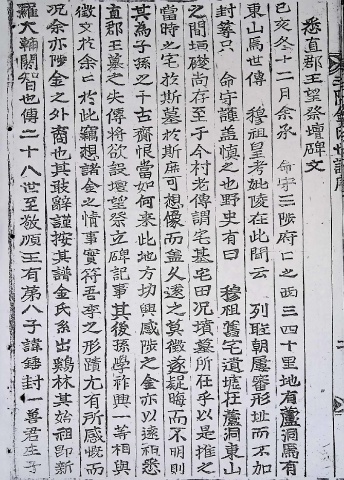 悉直郡王望祭壇碑文
己亥冬十二月余承 命守三陟府〻之西三四十里地有蘆洞焉有
東山焉世傳 穆祖皇考妣陵在此間云 列聖朝屢審形址而不加
封尊只 命守護盖愼之也野史有曰 穆祖舊宅遺墟在蘆洞東山
之間垣礎尚存至于今村老傳謂宅基宅田况墳墓所在乎以是推之
當時之宅於斯墓於斯庶可想像而盖久遠之莫徵遂疑晦而不明則
其爲子孫之千古齎恨當如何來此地方切興感陟之金亦以遠祖悉
直郡王墓之失傳將欲設壇望祭立碑記事其後孫學祚興一等相與
徵文於余〻於此竊想諸金之情事實符吾李之形蹟尤有所感慨而
况余亦陟金之外裔也其敢辭謹按其譜金氏系出鷄林其始祖卽新
羅大輔閼智也傳二十八世至敬順王有第八子諱錘封一善君生子